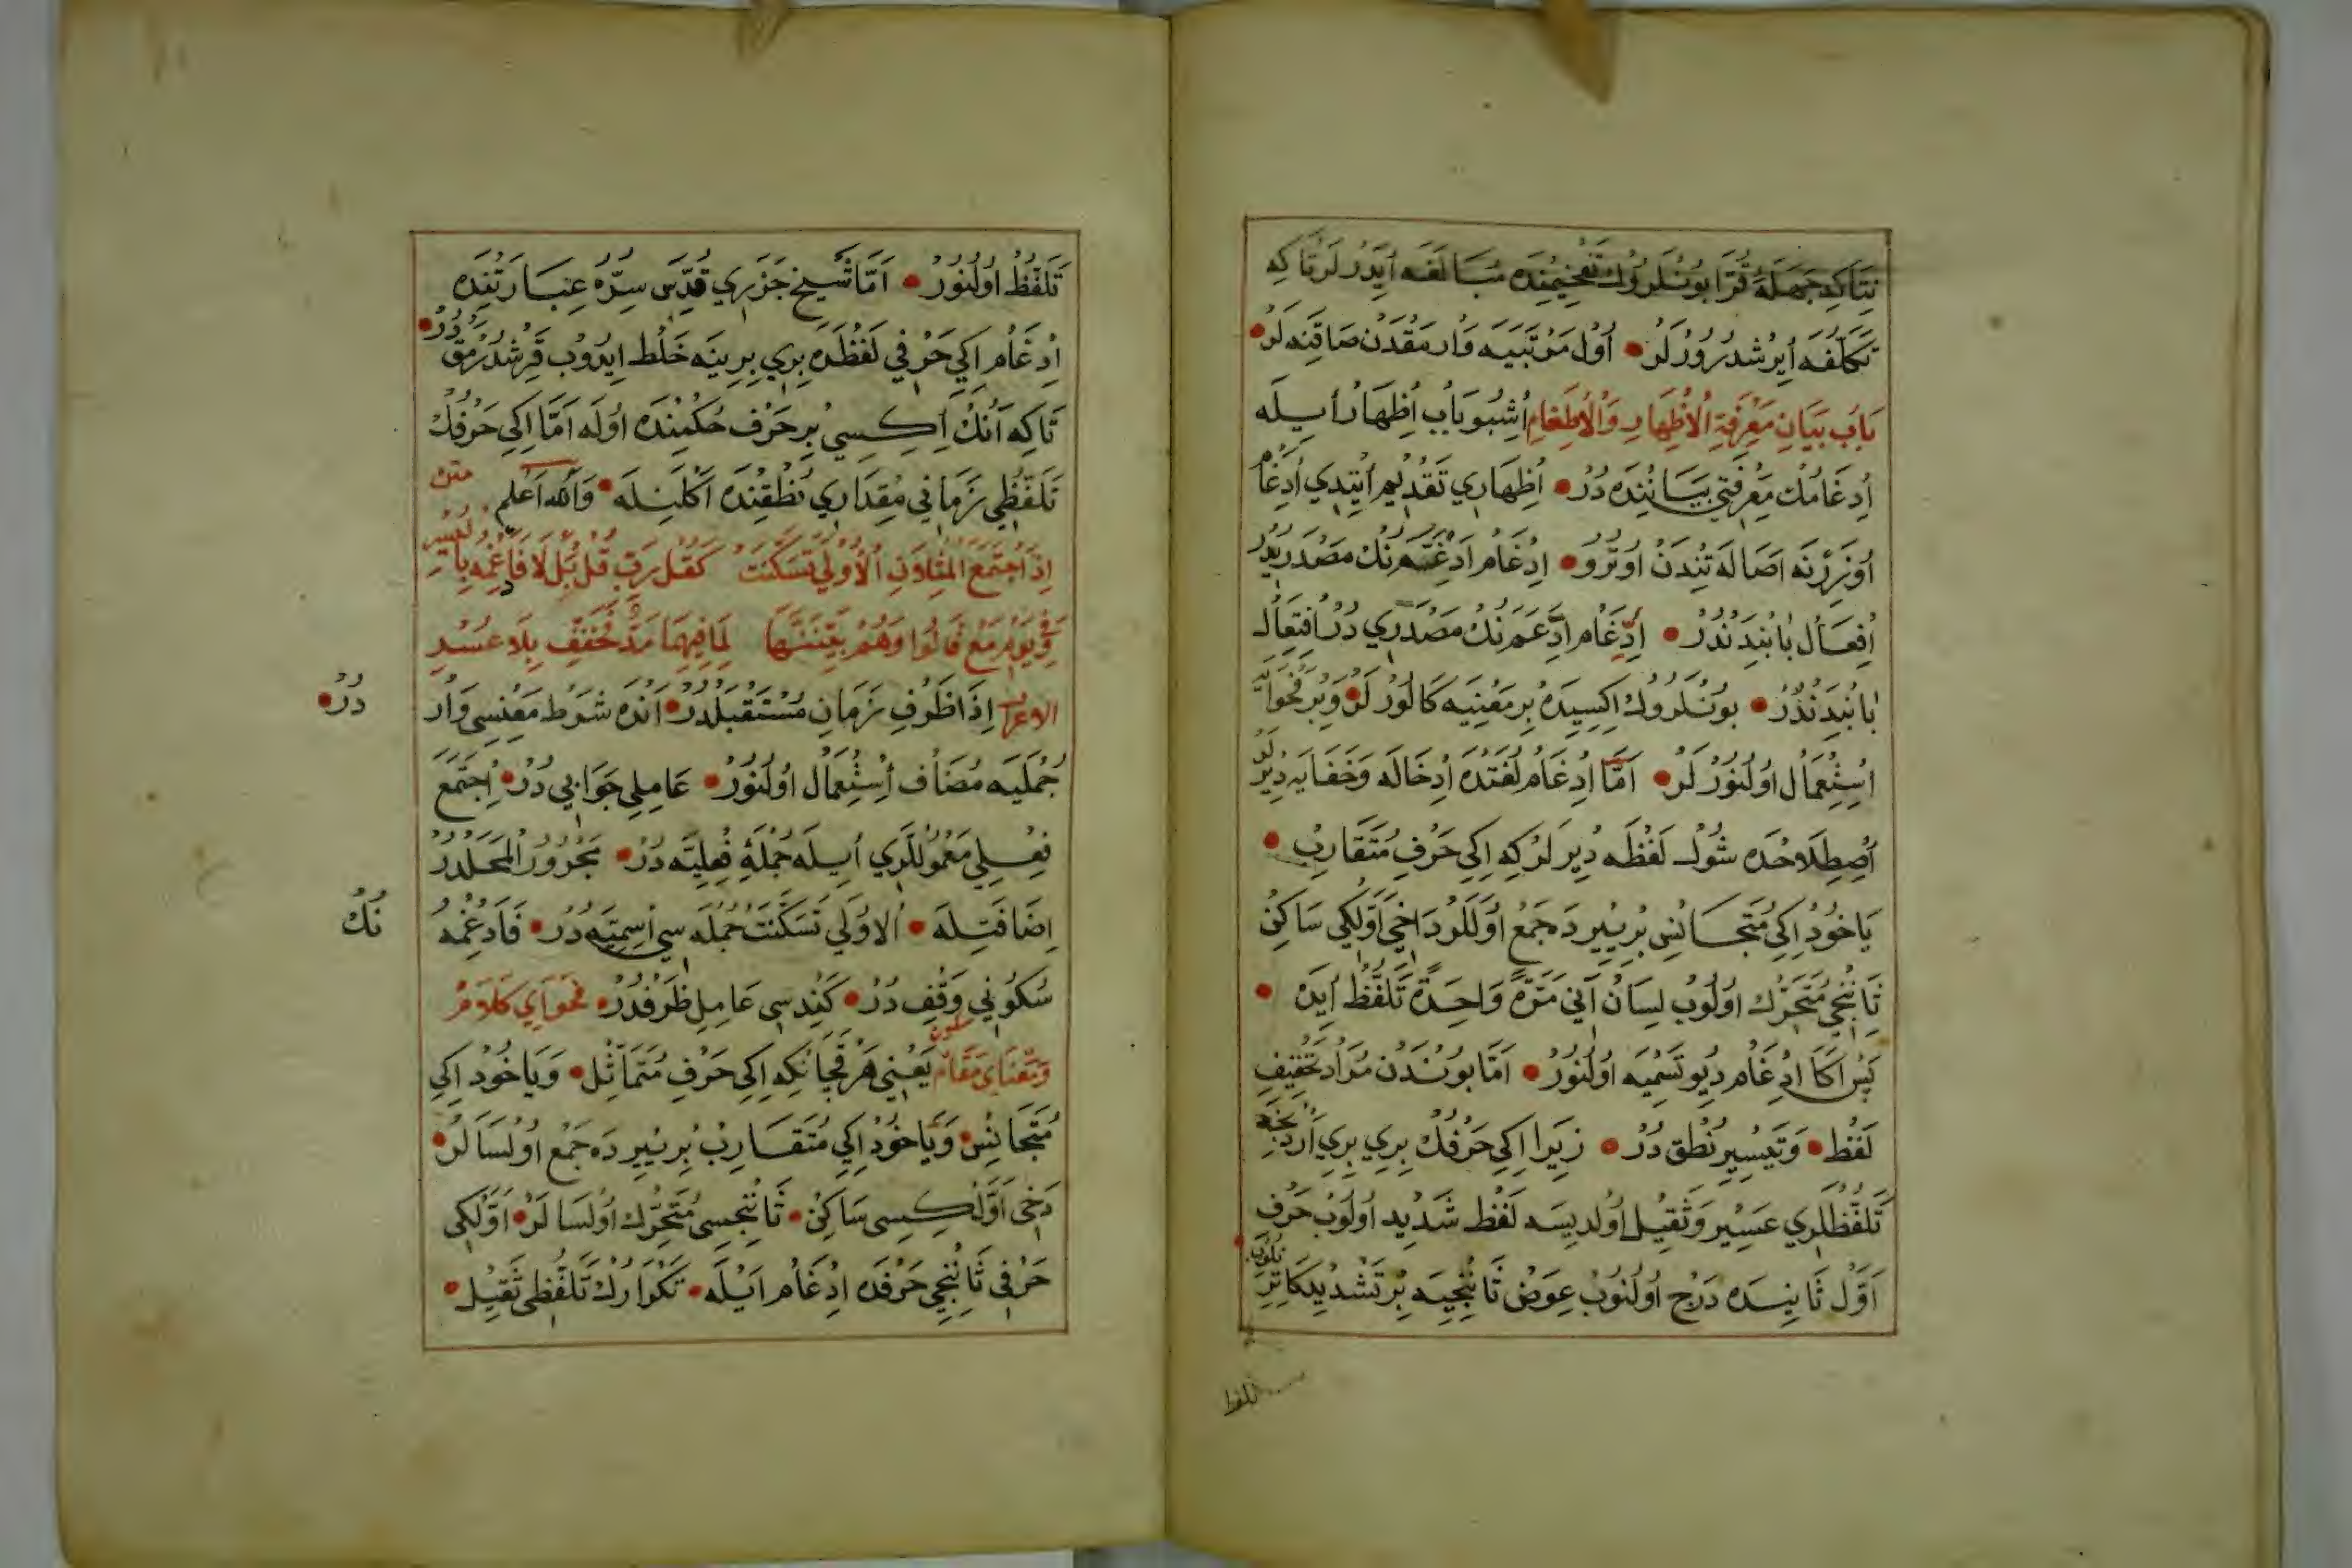 نِتَاكِه جَهَلَهٔ قُرَّا بُونْلَرُوكْ تَفْخِيمِنْدَه مُبَالَغَه اَيدَرْلَرْ تَاكِه
تَكَلُّفَه اِيرِشْدُرُورْلَرْ اُولْ مَرْتَبَيَه وَارْمَقْدَنْ صَاقِنَه لَرْ
بَابُ بَيَانِ مَعْرِفَةِ الْاِظْهَارِ وَالْاِدْغَامِ اُشْبُو بَابْ اِظْهَارْ اِيلَه
اِدْغَامُكْ مَعْرِفَتِي بَيَانِنْدَه دُرْ اِظْهَارِي تَقْدِيمْ اَيتِدِي اِدْغَامْ
اُوزَرِنَه اَصَالَتِنْدَنْ اُوتْرُو اِدْغَامْ اَدْغَمَه نُكْ مَصْدَرِيدُرْ
اِفْعَالْ بَابِنْدَنْدُرْ اِدِّغَامْ اِدَّغَمَ نُكْ مَصْدَرِي دُرْ اِفْتِعَالْ
بَابِنْدَنْدُرْ بُونْلَرُوكْ اِكِيسِيدَه بِرْ مَعْنِيَه كَالُورْ لَرْ وَبِرْ فَحْوَادَه
اِسْتِعْمَالْ اُولُنُورْ لَرْ اَمَّا اِدْغَامْ لُغَتْدَه اِدْخَالَه وَخَفَايَه دِيرْلَرْ
اِصْطِلَاحْدَه شُولْ لَفْظَه دِيرَلَرْ كِه اِكِي حَرْفِ مُتَقَارِبْ
يَاخُودْ اِكِي مُتَجَانِسْ بِرْ يِيرْدَه جَمْعْ اُولَلَرْ دَاخِي اَوَّلْكِي سَاكِنْ
ثَانِنْجِي مُتَحَرِّكْ اُولُوبْ لِسَانْ اَنِي مَرَّةً وَاحِدَةً تَلَفُّظْ اَيدَه
پَسْ اَكَا اِدْغَامْ دِيُو تَسْمِيَه اُولُنُورْ اَمَّا بُونْدَنْ مُرَادْ تَخْفِيفِ
لَفْظْ وَتَيْسِيرِ نُطْقْ دُرْ زِيرَا اِكِي حَرْفُكْ بِرِي بِرِي اَرْدِنْجَه
تَلَفُّظْلَرِي عَسِيرْ وَثَقِيلْ اُولْدِيسَه لَفْظْ شَدِيدْ اُولُوبْ حَرْفِ
اَوَّلْ ثَانِيسَدَه دَرْجْ اُولُنُوبْ عِوَضْ ثَانِنْجِيَه بِرْ تَشْدِيدْ
تلفظ
تَلَفُّظْ اُولُنُورْ اَمَّا شَيْخْ جَزَرِي قُدِّسَ سِرُّهُ عِبَارَتِنْدَه
اِدْغَامْ اِكِي حَرْفِي لَفْظْدَه بِرِي بِرِينَه خَلْطْ اِيدُوبْ قَرِشْدُرْمَقْ دُرْ
تَاكِه اَنُكْ اِكِيسِي بِرْ حَرْفْ حُكْمِنْدَه اُولَه اَمَّا اِكِي حَرْفُكْ
تَلَفُّظِي زَمَانِي مِقْدَارِي نُطْقِنْدَه اَكْلَنِلَه وَاللهُ اَعْلَمْ متن
اِذَا اجْتَمَعَ الْمِثْلَانِ الْاُولَى تَسَكَّنَتْ كَقُلْ رَبِّ قُلْ بَلْ لَا فَادْغِمْهُ
فِي يَوْمِ مَعْ قَالُوا وَهُمْ لِمَا فِيهِمَا مَدٌّ مُخَفَّفٌ بِلَا عُسْرِ
الاعراب اِذَا ظَرْفِ زَمَانِ مُسْتَقْبَلْدُرْ اَنْدَه شَرْطْ مَعْنِسِي وَارْ دُرْ
جُمْلَيَه مُضَافْ اِسْتِعْمَالْ اُولُنُورْ عَامِلِي جَوَابِي دُرْ اِجْتَمَعَ
فِعْلِي مَعْمُولْلَرِي اِيلَه جُمْلَهٔ فِعْلِيَّه دُرْ مَجْرُورُ الْمَحَلْدُرْ
اِضَافَتِلَه اُلْاُولَى تَسَكَّنَتْ جُمْلَه سِي اِسْمِيَّه دُرْ فَادْغِمْهُ نُكْ
سُكُونِي وَقْفْ دُرْ كَنْدِسِي عَامِلِ ظَرْفْدُرْ فَحْوَايِ كَلَامْ
وَمَعْنَايِ مَقَامْ يَعْنِي هَرْ قَچَانْكِه اِكِي حَرْفِ مُتَمَاثِلْ وَيَاخُودْ اِكِي
مُتَجَانِسْ وَيَاخُودْ اِكِي مُتَقَارِبْ بِرْ يِيرْدَه جَمْعْ اُولْسَالَرْ
دَخِي اَوَّلْكِسِي سَاكِنْ ثَانِنْجِسِي مُتَحَرِّكْ اُولْسَا لَرْ اَوَّلْكِي
حَرْفِي ثَانِنْجِي حَرْفَدَه اِدْغَامْ اَيْلَه تَكْرَارُكْ تَلَفُّظِي ثَقِيلْ